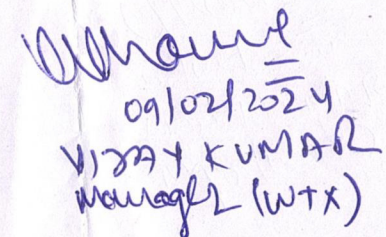 09/02/2024
VIJAY KUMAR
Manager (WTX)